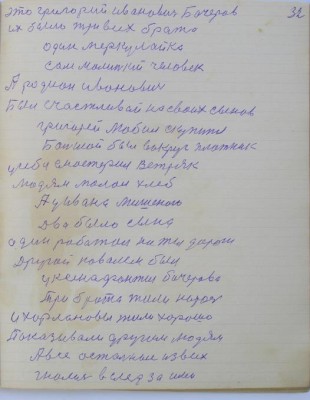 это григорий Иванович Бочеров
32
их было три всех брата
один меркулайка
сам малиткий человек
А родион иванович
Был счастливай на своих сынов
григорей Мобил скупитя
Бошшой был вокруг плотник
учеби смастерил Ветряк
людям молол хлеб
А у ивана мишаного
Два было сына
один работал на жел дароги
Другой ковалем был
у ксенафонтия бочерова
Три брата жили нарох
и харлановы жили хорошо
Показывали другим людям
А все остальные из вих
гнолися вслед за ими